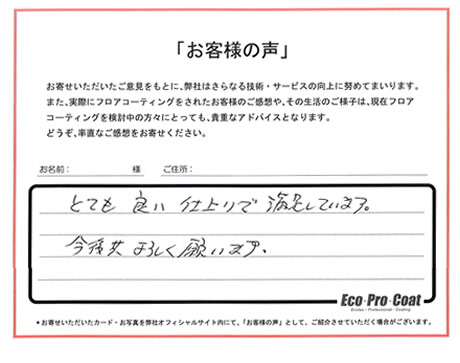 「お客様の声」
お寄せいただいたご意見をもとに、弊社はさらなる技術・サービスの向上に努めてまいります。
また、実際にフロアコーティングをされたお客様のご感想や、その生活のご様子は、現在フロア
コーティングを検討中の方々にとっても、貴重なアドバイスとなります。
どうぞ、率直なご感想をお寄せください。
お名前： 様 ご住所：
とても 良い 仕上りで 満足しています。
今後共 よろしく 願います.
Eco・Pro・Coat
Ecotec・Professional・Coating
＊お寄せいただいたカード・お写真を弊社オフィシャルサイト内にて、「お客様の声」として、ご紹介させていただく場合がございます。